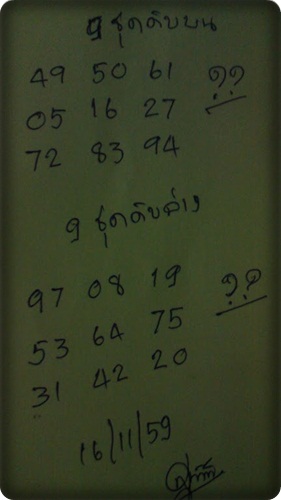 9 ชุดดับบน
49 50 61
05 16 27 ??
72 83 94
9 ชุดดับล่าง
97 08 19
53 64 75 ??
31 42 20
16/11/59